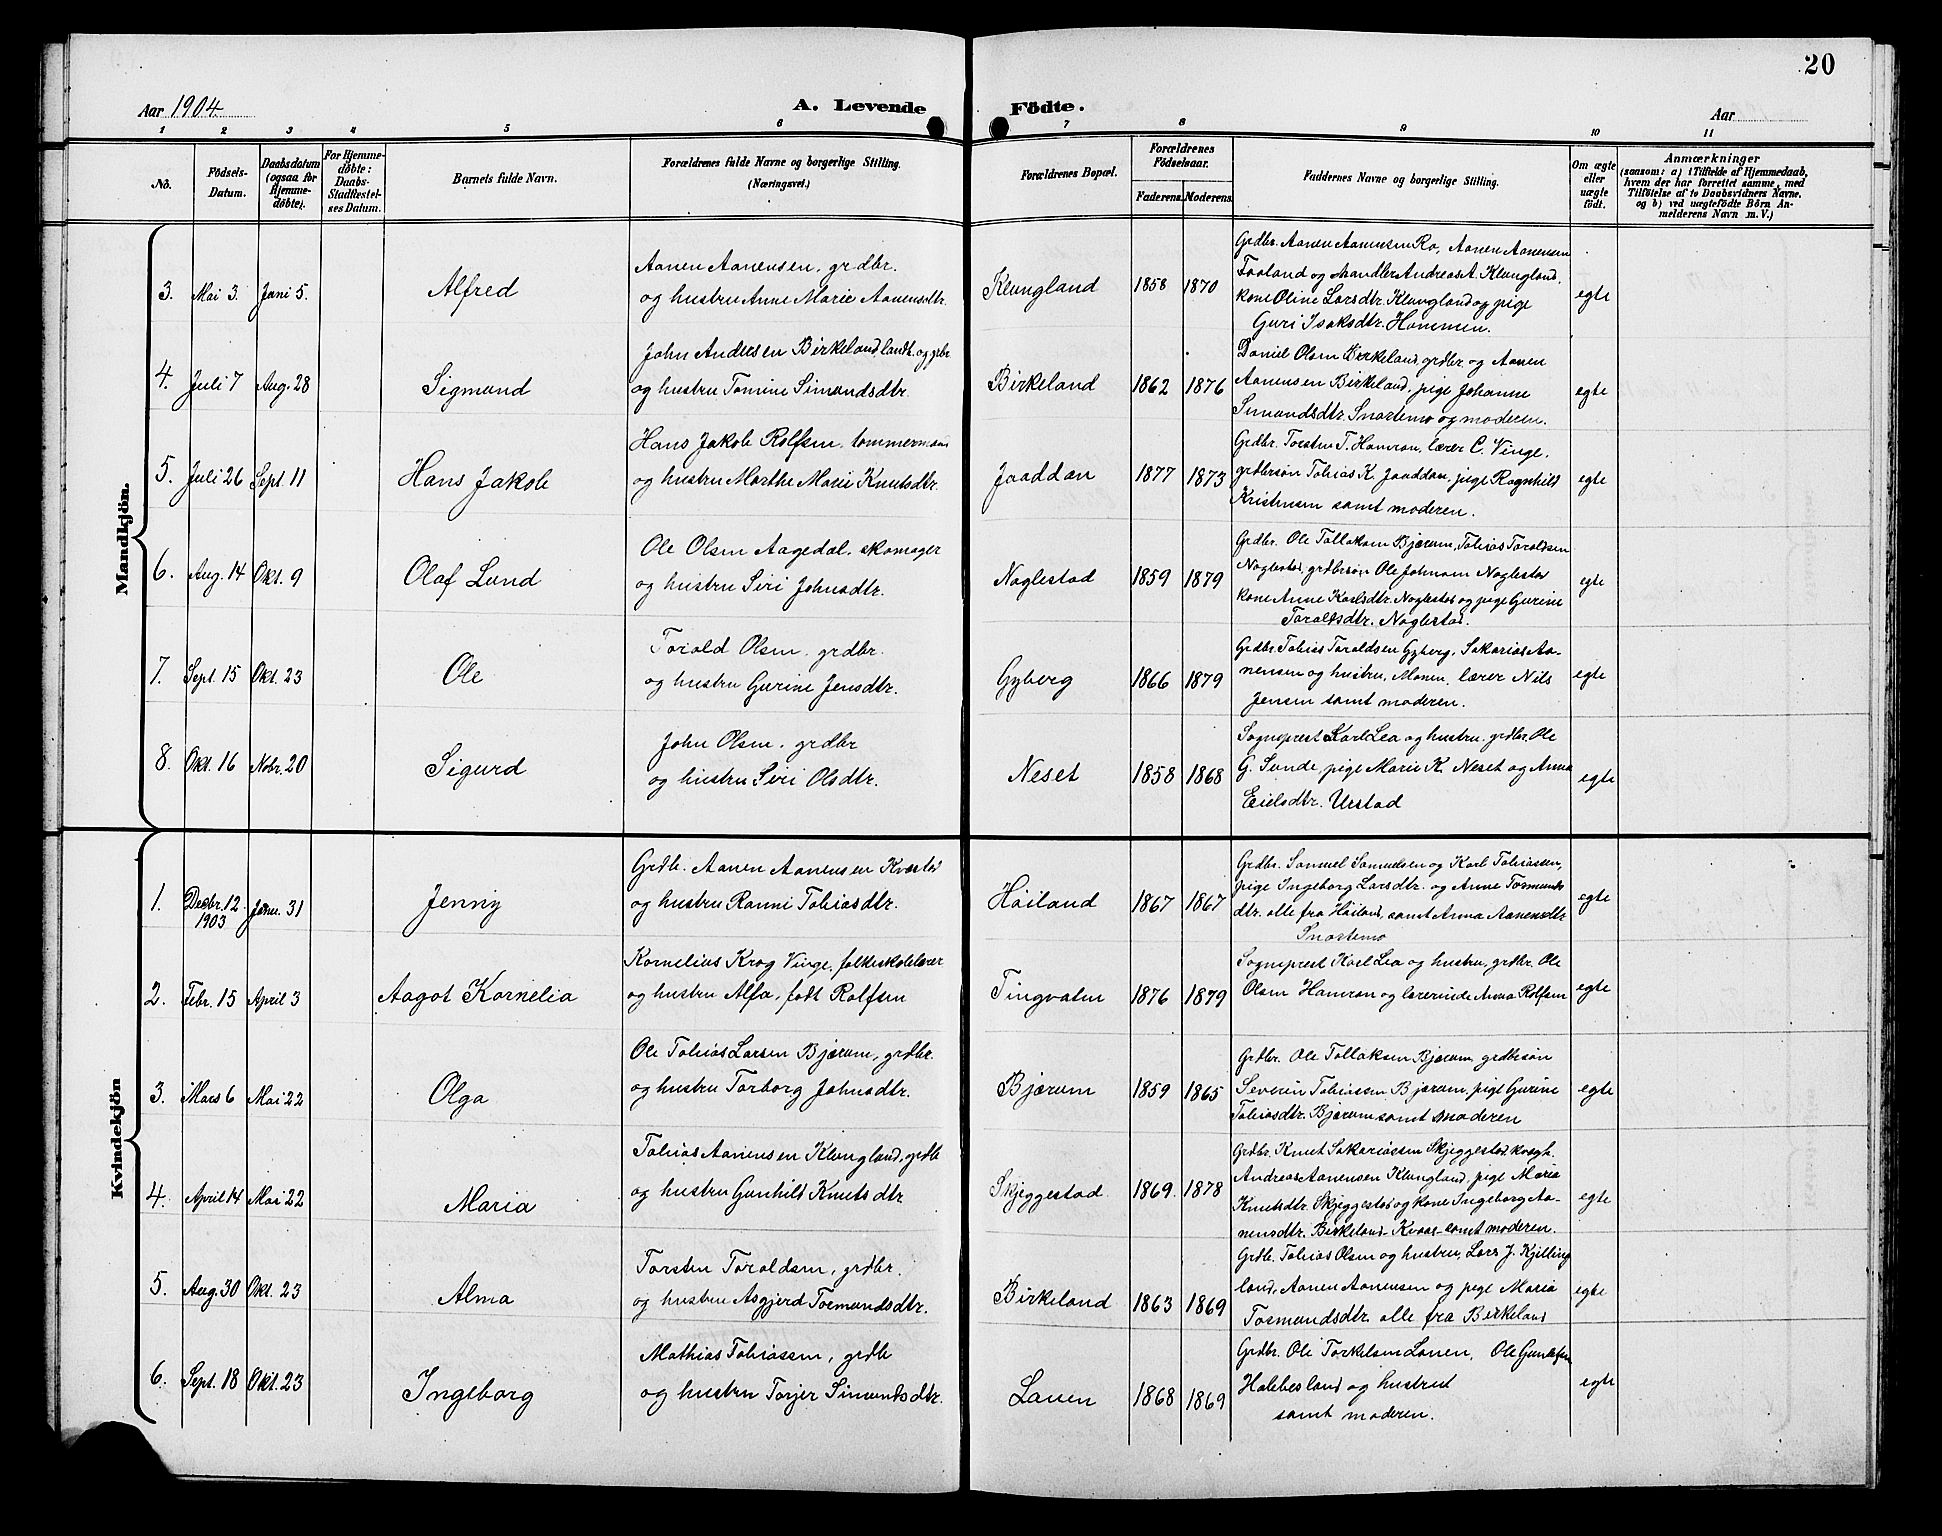 20
Aar 1904.
A. Levende Födte.
Aar
1 2 3 4 5 6 7 8 9 10 11
No.
Födsels-
Datum.
Daabsdatum
(ogsaa for
Hjemme-
döbte).
For Hjemme-
döbte:
Daabs-
Stadfæstel-
ses Datum.
Barnets fulde Navn.
Forældrenes fulde Navne og borgerlige Stilling.
(Næringsvei.)
Forældrenes Bopæl.
Forældrenes
Födselsaar.
Faderens. Moderens.
Faddernes Navne og borgerlige Stilling.
Om ægte
eller
uægte
födt.
Anmærkninger
(saasom: a) i Tilfælde af Hjemmedaab,
hvem der har forrettet samme, med
Tilföielse af to Daabsvidners Navne.
og b) ved uægtefödte Börn An-
melderens Navn m. V.)
Mandkjön.
3. Mai 3. Juni 5. Alfred
Aanen Aanensen, grdbr.
og hustru Anne Marie Aanensdtr.
Klungland 1858 1870
Grdbr. Aanen Aanensen Ro, Aanen Aanensen
Faaland og handler Andreas A. Klungland,
kone Oline Larsdtr. Klungland og pige
Guri Isaksdtr. Hommen.
egte
4. Juli 7 Aug. 28 Sigmund
John Andersen Birkeland landh. og grbr.
og hustru Tomine Simundsdtr.
Birkeland 1862 1876
Daniel Olsen Birkeland, grdbr. og Aanen
Aanensen Birkeland, pige Johanne
Simundsdtr. Snartemo og moderen.
egte
5. Juli 26 Sept. 11 Hans Jakob
Hans Jakob Rolfsen, tømmermann
og hustru Marthe Marie Knutsdtr.
Jaaddan 1877 1873
Grdbr. Torsten T. Hamran, lærer C. Vinge,
grdbrsøn Tobias K. Jaaddan, pige Ragnhild
Kristensen samt moderen.
egte
6. Aug. 14 Okt. 9 Olaf Lund
Ole Olsen Aagedal, skomager
og hustru Siri Johnsdtr.
Noglestad 1859 1879
Grdbr. Ole Tollaksen Bjærum, Tobias Taroldsen
Noglestad, grdbrsøn Ole Johnsen Noglestad
kone Anne Karlsdtr. Noglestad og pige Gurine
Taroldsdtr. Noglestad.
egte
7. Sept. 15 Okt. 23 Ole
Torold Olsen, grdbr.
og hustru Gurine Jensdtr.
Gyberg 1866 1879
Grdbr. Tobias Taroldsen Gyberg, Sakarias Aa-
nensen og hustru, Monen, lærer Nils
Jensen samt moderen.
egte
8. Okt. 16 Nobr. 20 Sigurd
John Olsen, grdbr
og hustru Siri Olsdtr.
Neset 1858 1868
Sogneprest Karl Lea og hustru, grdbr. Ole
G. Sunde, pige Marie K. Neset og Anna
Eielsdtr. Urstad
egte
Kvindekjön
1. Decbr. 12 Janu. 31 Jenny
1903
Grdb. Aanen Aanensen Kvæstad
og hustru Ranni Tobiasdtr.
Høiland 1867 1867
Grdbr. Samuel Samuelsen og Karl Tobiassen,
pige Ingeborg Larsdtr. og Anne Tormunds
dtr. alle fra Høiland, samt Anna Aanensdtr
Snartemo
egte
2. Febr. 15 April 3 Aagot Kornelia
Kornelius Krog Vinge, folkeskolelærer
og hustru Alfa, født Rolfsen
Tingvatn 1876 1879
Sogneprest Karl Lea og hustru, grdbr. Ole
Olsen Hamran og lærerinde Anna Rolfsen
egte
3. Mars 6 Mai 22 Olga
Ole Tobias Larsen Bjærum, grdbr.
og hustru Torborg Johnsdtr.
Bjærum 1859 1865
Grdbr. Ole Tollaksen Bjærum, grdbrsøn
Severin Tobiassen Bjærum, pige Gurine
Tobiasdtr. Bjærum samt moderen
egte
4. April 14 Mai 22 Maria
Tobias Aanensen Klungland, grdb
og hustru Gunhild Knutsdtr
Skjeggestad 1869. 1878
Grdbr. Knut Sakariassen Skjeggestad, kvægh.
Andreas Aanensen Klungland, pige Maria
Knutsdtr. Skjeggestad og kone Ingeborg Aa-
nensdtr. Birkeland Kvaas samt moderen.
egte
5. Aug. 30 Okt. 23 Alma
Torsten Taroldsen, grdbr.
og hustru Asgjerd Tormundsdtr.
Birkeland 1863 1869
Grdb. Tobias Olsen og hustru, Lars J. Kjilling
land, Aanen Aanensen og pige Maria
Tormundsdtr. alle fra Birkeland
egte
6. Sept. 18 Okt. 23 Ingeborg
Mathias Tobiassen, grdb
og hustru Torjer Simundsdtr.
Lauen 1868 1869
Grdbr. Ole Torkelsen Lauen, Ole
Halebesland og hustrut
samt moderen.
egte